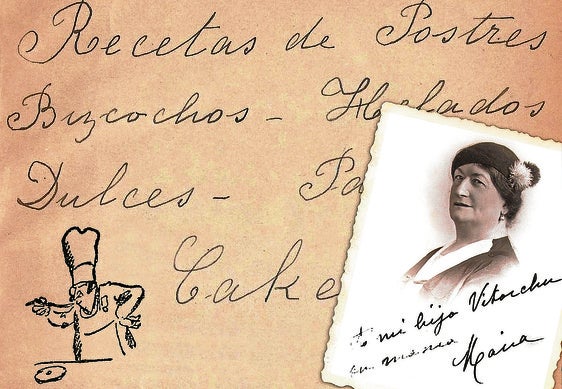 Recetas de Postres
Bizcochos - Helados
Dulces - Pa
Cake
a mi hijo Vitorchu
su mama
Maria